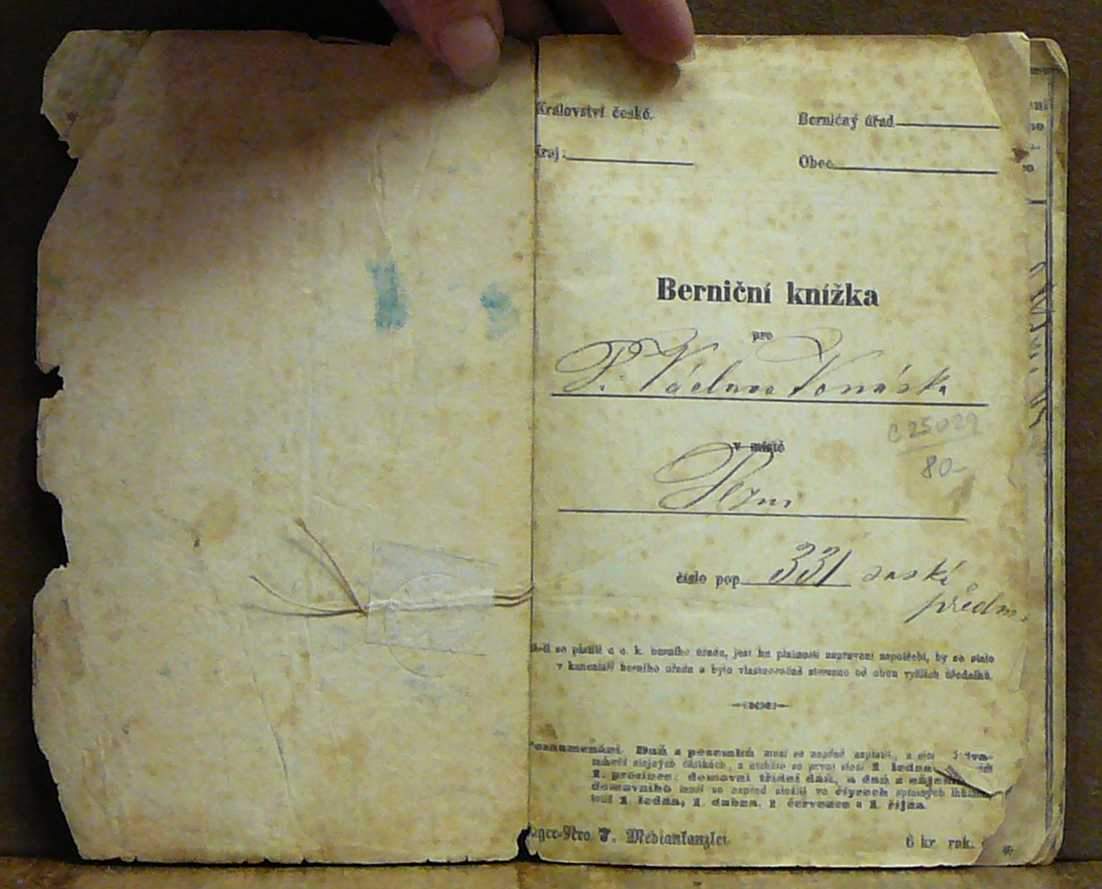 Království české.
Berničný úřad
Kraj:
Obec
Berniční knížka
pro
P. Václava Vonáska
v místě
Plzni
C 25029
80-
číslo pop. 331 saské
předm.
se platiti c. k. berního úřadu, jest ku platnosti zapravení zapotřebí, by se stalo
v kanceláři berního úřadu a bylo vlastnoručně stvrzeno od obou vyšších úředníků.
Daň z pozemků musí se napřed zaplatit, a
stejných částkách, z nichžto se první složí 1. ledna
1. prosince; domovní třídní daň, a daň z nájemu
domovního musí se napřed složiti ve čtyrech
totiž 1. ledna, 1. dubna, 1. července a 1. října.
Mediankanzlei
6 kr. rak.